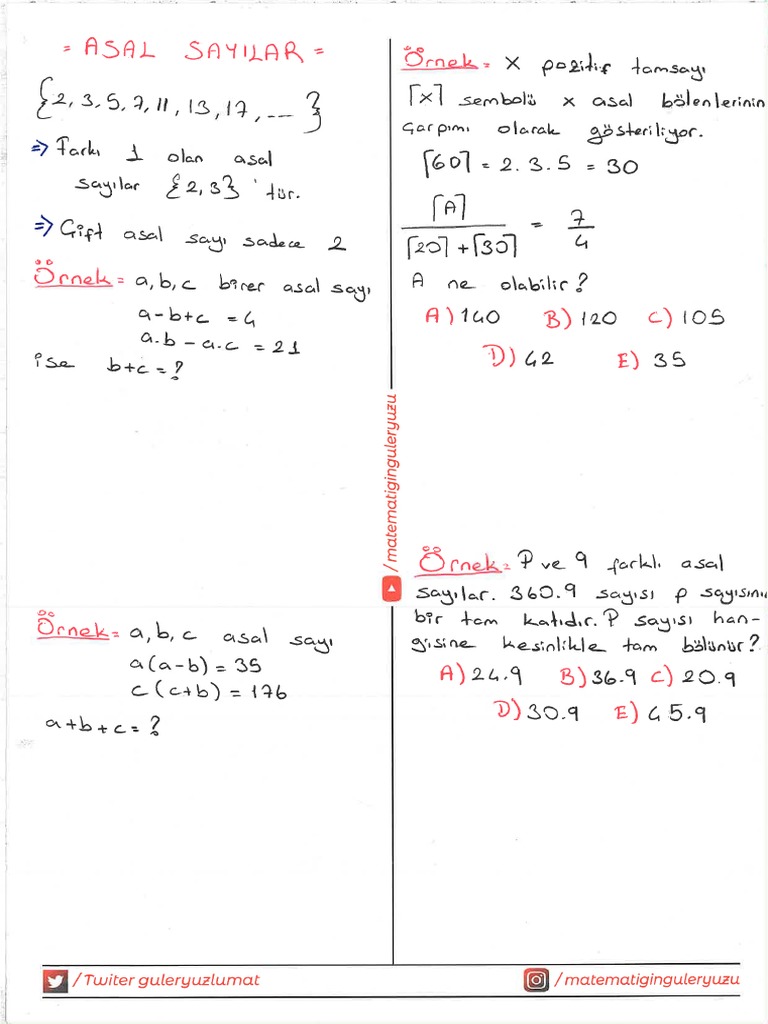 = ASAL SAYILAR =
{2, 3, 5, 7, 11, 13, 17, ---- }
⇒ Farkı 1 olan asal
sayılar {2,3} 'tür.
⇒ Çift asal sayı sadece 2
Örnek = a, b, c birer asal sayı
a-b+c = 4
a.b - a.c = 21
ise b+c = ?
Örnek = a, b, c asal sayı
a(a-b) = 35
c(c+b) = 176
a+b+c = ?
Örnek = x pozitif tamsayı
⌈x⌉ sembolü x asal bölenlerinin
çarpımı olarak gösteriliyor.
⌈60⌉ = 2.3.5 = 30
⌈A⌉
⌈20⌉+⌈30⌉ = 7/4
A ne olabilir?
A) 140 B) 120 C) 105
D) 42 E) 35
Örnek = P ve q farklı asal
sayılar. 360.q sayısı p sayısını
bir tam katıdır. P sayısı han-
gisine kesinlikle tam bölünür?
A) 24.q B) 36.q C) 20.q
D) 30.q E) 45.q
/matematiginguleryuzu
/Twiter guleryuzlumat
/matematiginguleryuzu